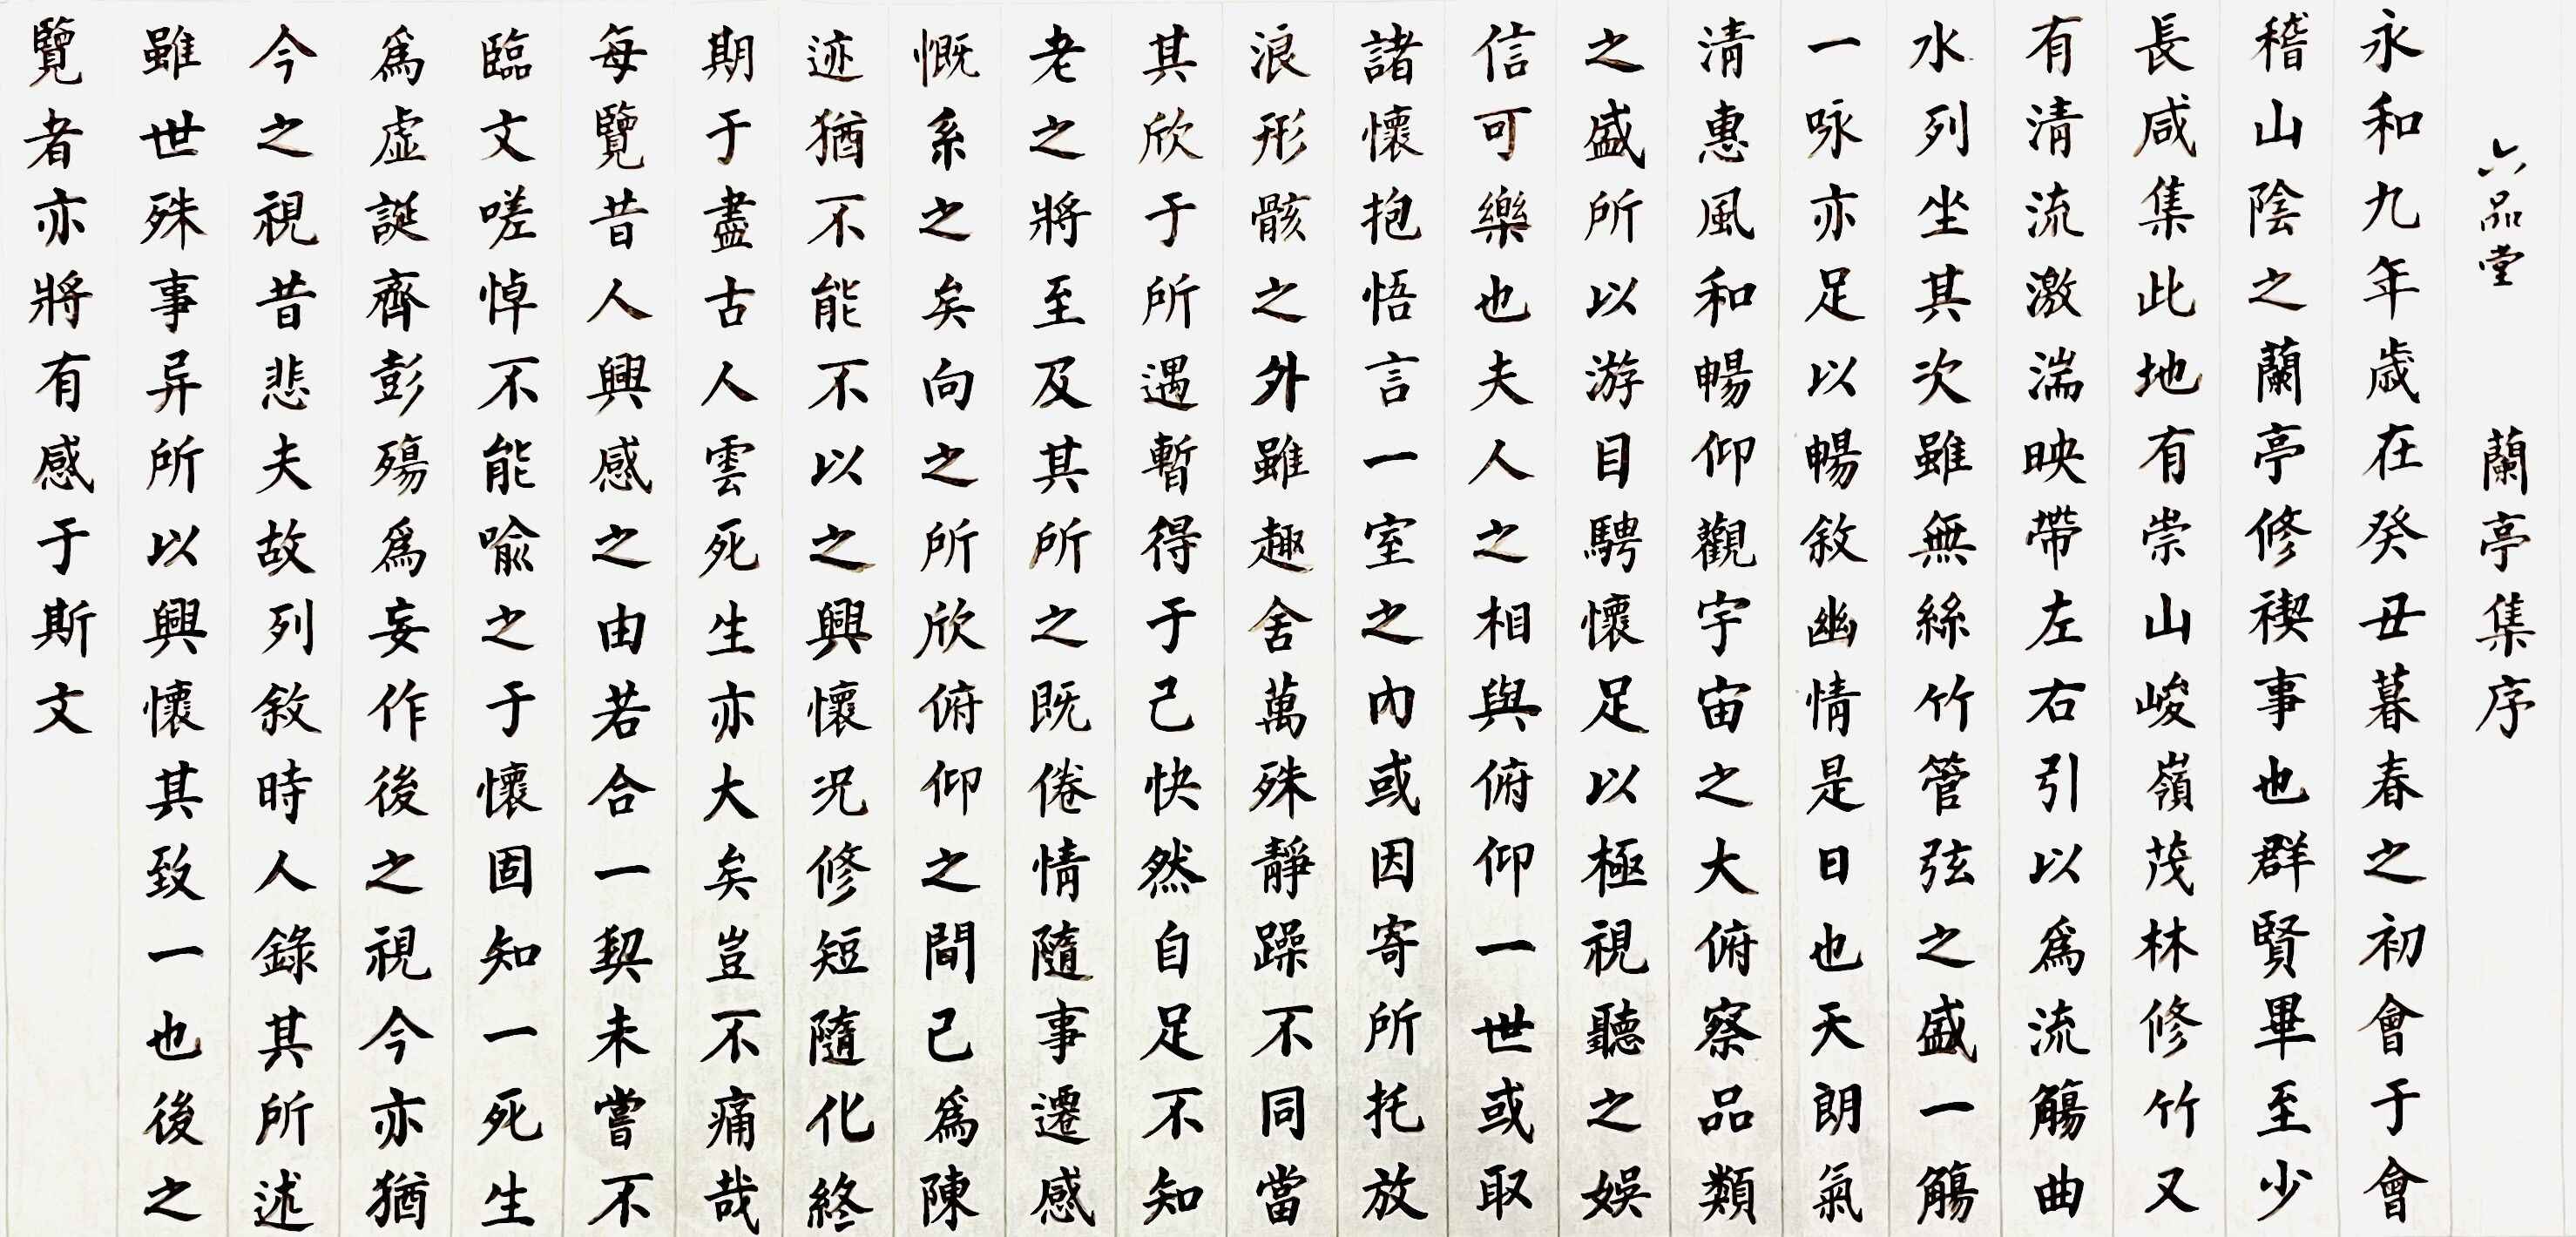 六品堂 蘭亭集序
永和九年歲在癸丑暮春之初會于會
稽山陰之蘭亭修禊事也群賢畢至少
長咸集此地有崇山峻嶺茂林修竹又
有清流激湍映帶左右引以爲流觴曲
水列坐其次雖無絲竹管弦之盛一觴
一咏亦足以暢敘幽情是日也天朗氣
清惠風和暢仰觀宇宙之大俯察品類
之盛所以游目騁懷足以極視聽之娛
信可樂也夫人之相與俯仰一世或取
諸懷抱悟言一室之內或因寄所托放
浪形骸之外雖趣舍萬殊靜躁不同當
其欣于所遇暫得于己快然自足不知
老之將至及其所之既倦情隨事遷感
慨系之矣向之所欣俯仰之間已爲陳
迹猶不能不以之興懷況修短隨化終
期于盡古人雲死生亦大矣豈不痛哉
每覽昔人興感之由若合一契未嘗不
臨文嗟悼不能喻之于懷固知一死生
爲虛誕齊彭殤爲妄作後之視今亦猶
今之視昔悲夫故列敘時人錄其所述
雖世殊事异所以興懷其致一也後之
覽者亦將有感于斯文